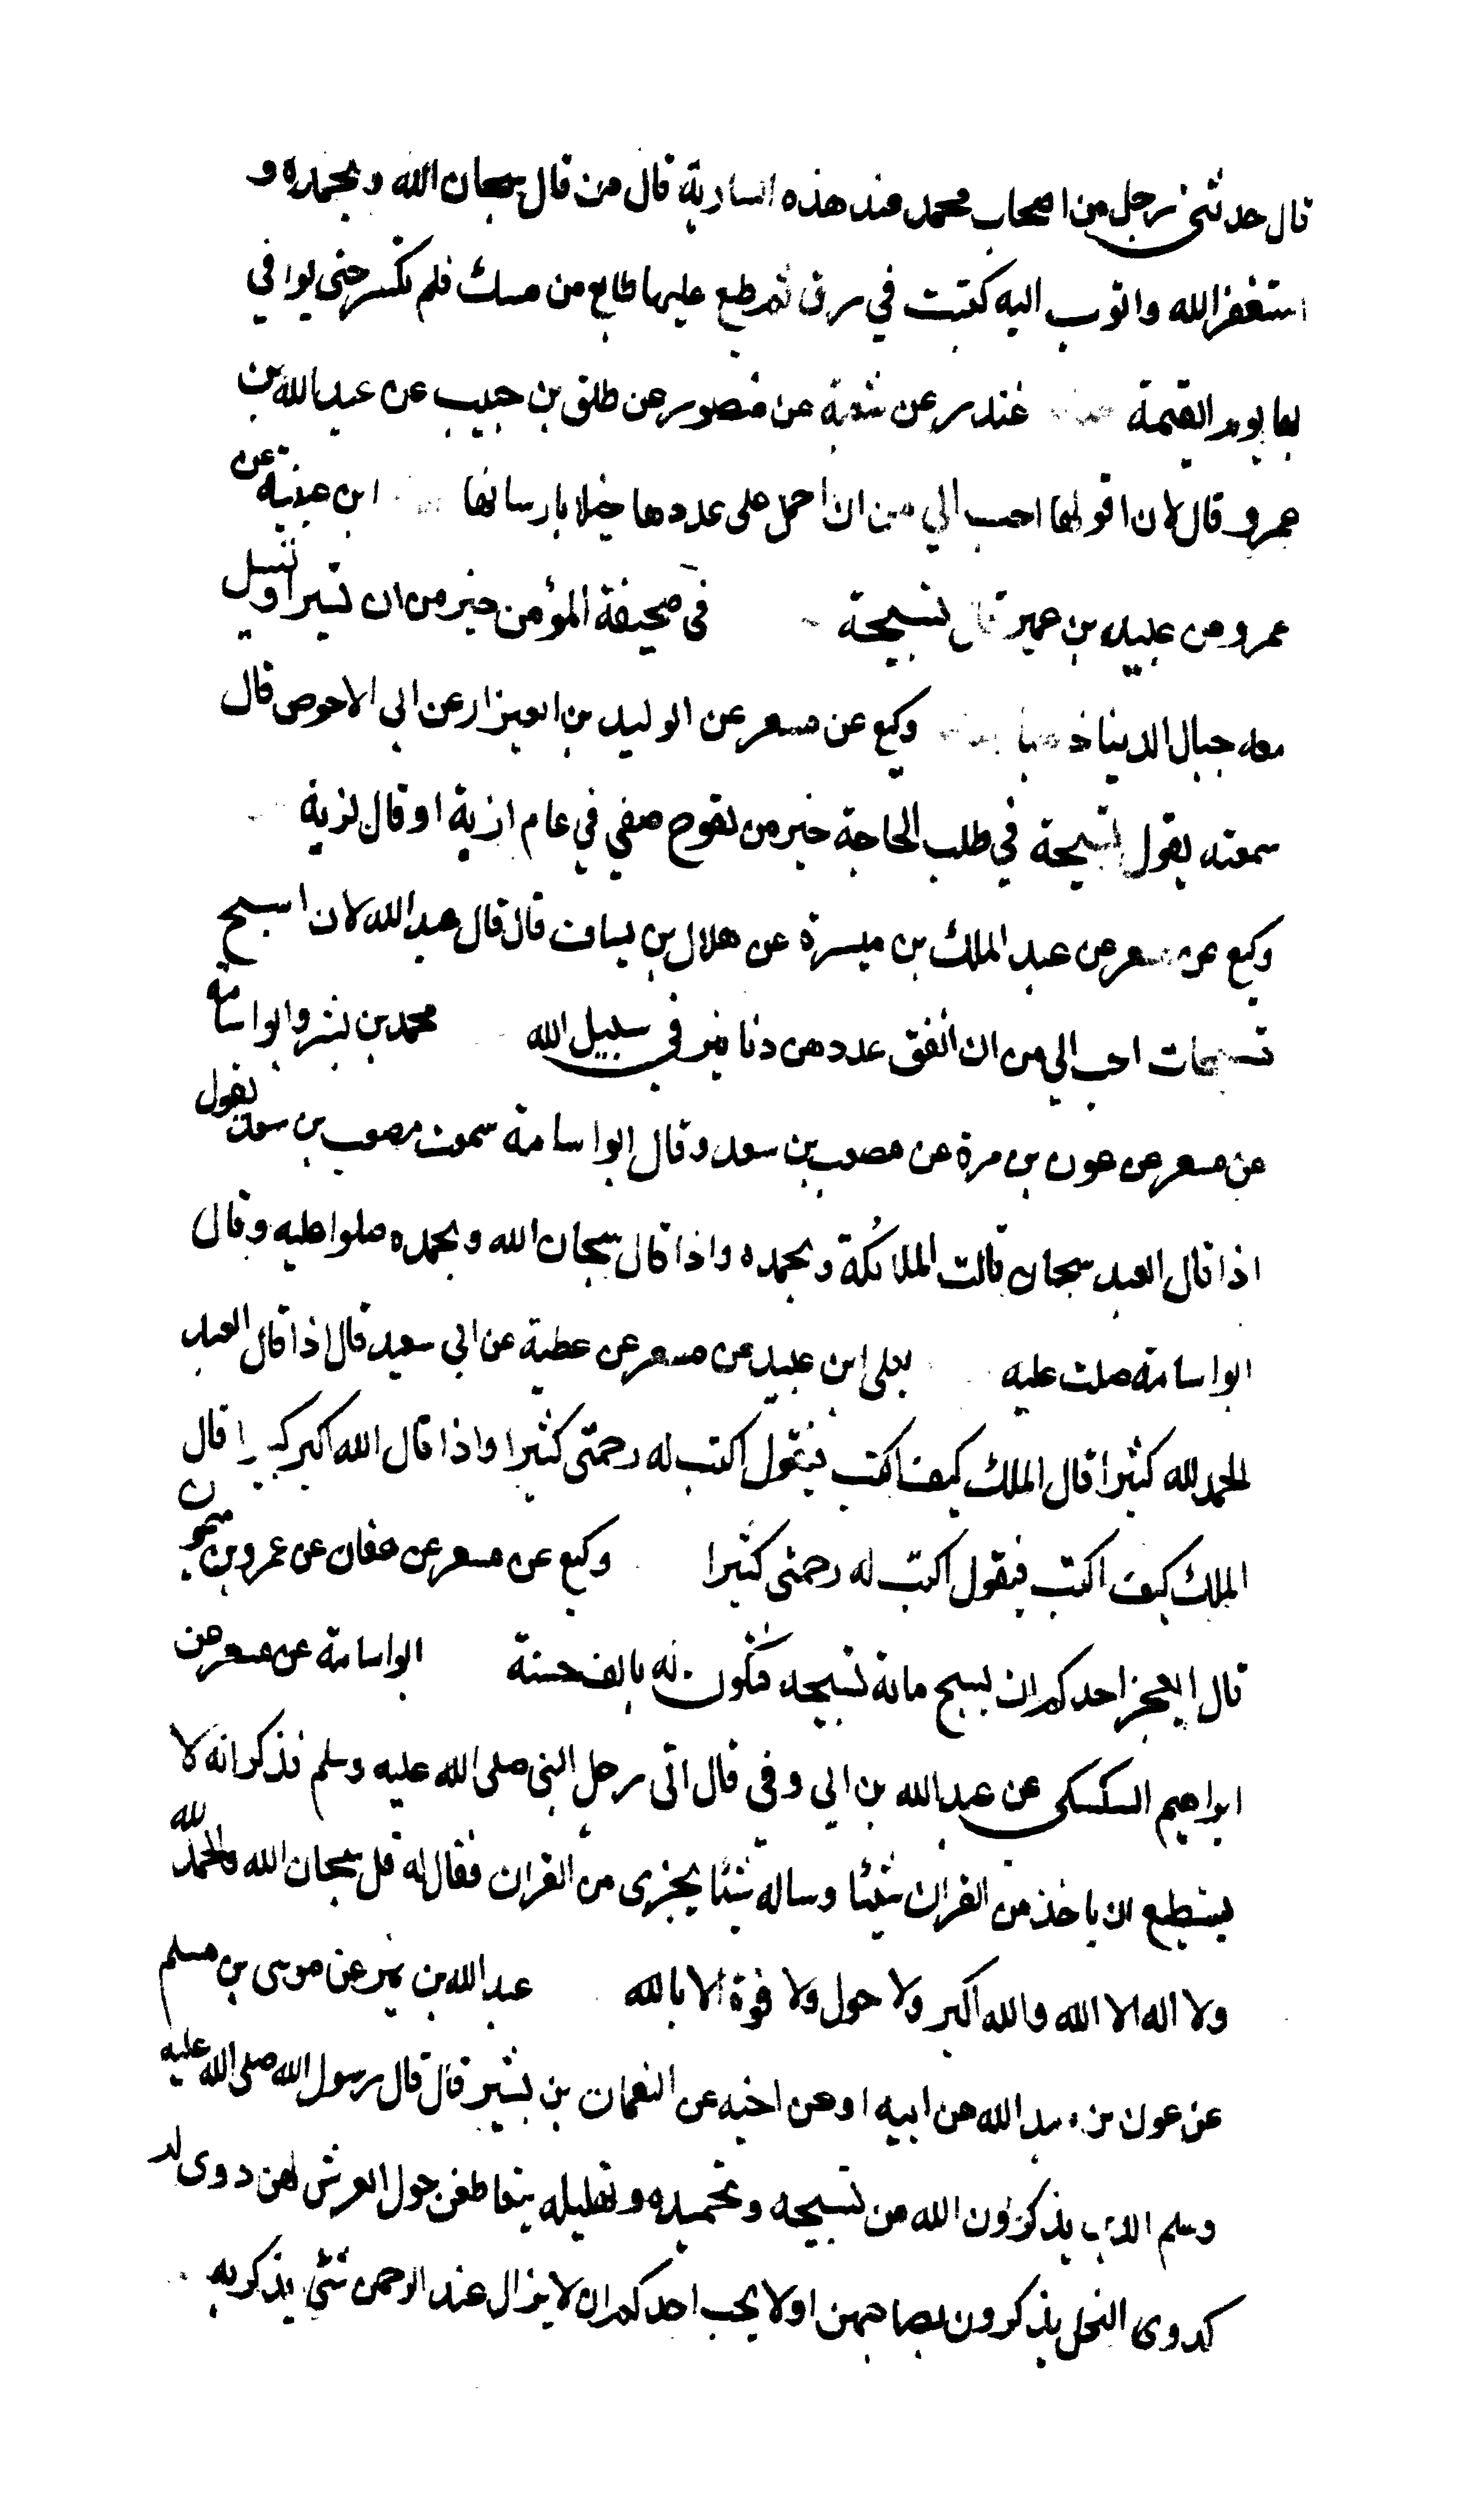 قال حدثني رجل من اصحاب محمد عند هذه السارية قال من قال سبحان الله وبحمده و
استغفر الله واتوب اليه كتبت في رق ثم طبع عليها طابع من مسك فلم تكسر حتى يوافي
بها يوم القيمة غندر عن شعبة عن منصور عن طلق بن حبيب عن عبدالله بن
عمرو قال لان اقولها احب الي من ان احمل على عددها خيلا بارسانها ابن عيينة عن
عمرو عن عبيد بن عمير قال تسبيحة في صحيفة المؤمن خير من ان تسير او تسيل
معه جبال الدنيا ذهبا وكيع عن مسعر عن الوليد بن العيزار عن ابي الاحوص قال
سمعته يقول تسبيحة في طلب الحاجة خير من لقوح صفي في عام ازبة او قال لزبة
وكيع عن مسعر عن عبد الملك بن ميسرة عن هلال بن يساف قال قال عبدالله لان اسبح
تسبيحات احب الي من ان انفق عددهن دنانير في سبيل الله محمد بن بشر وابو اسامة
عن مسعر عن عون بن مرة عن مصعب بن سعد وقال ابو اسامة سمعت مصعب بن سعد يقول
اذا قال العبد سبحان قالت الملائكة وبحمده واذا قال سبحان الله وبحمده صلوا عليه وقال
ابو اسامة صلت عليه يعلى ابن عبيد عن مسعر عن عطية عن ابي سعيد قال اذا قال العبد
الحمد لله كثيرا قال الملك كيف اكتب فيقول اكتب له رحمتي كثيرا واذا قال الله اكبر كبيرا قال
الملك كيف اكتب فيقول اكتب له رحمتي كثيرا وكيع عن مسعر عن عفان عن عمرو بن ميمون
قال ايعجز احدكم ان يسبح مائة تسبيحه فتكون له بالف حسنة ابو اسامة عن مسعر عن
ابراهيم السكسكى عن عبدالله بن ابي وفى قال اتى رجل النبي صلى الله عليه وسلم فذكر انه لا
يستطيع ان ياخذ من القران شيئا وساله شيئا يجزى من القران فقال له قل سبحان الله والحمد لله
ولا اله الا الله والله اكبر ولا حول ولا قوة الا بالله عبد الله بن نمير عن موسى بن مسلم
عن عون بن عبد الله عن ابيه او عن اخيه عن النعمان بن بشير قال قال رسول الله صلى الله عليه
وسلم الذين يذكرون الله من تسبيحه وتحميده وتهليله يتعاطفن حول العرش لهن دوى
كدوى النحل يذكرون بصاحبهن اولا يحب احدكم ان لا يزال عند الرحمن شئ يذكر به